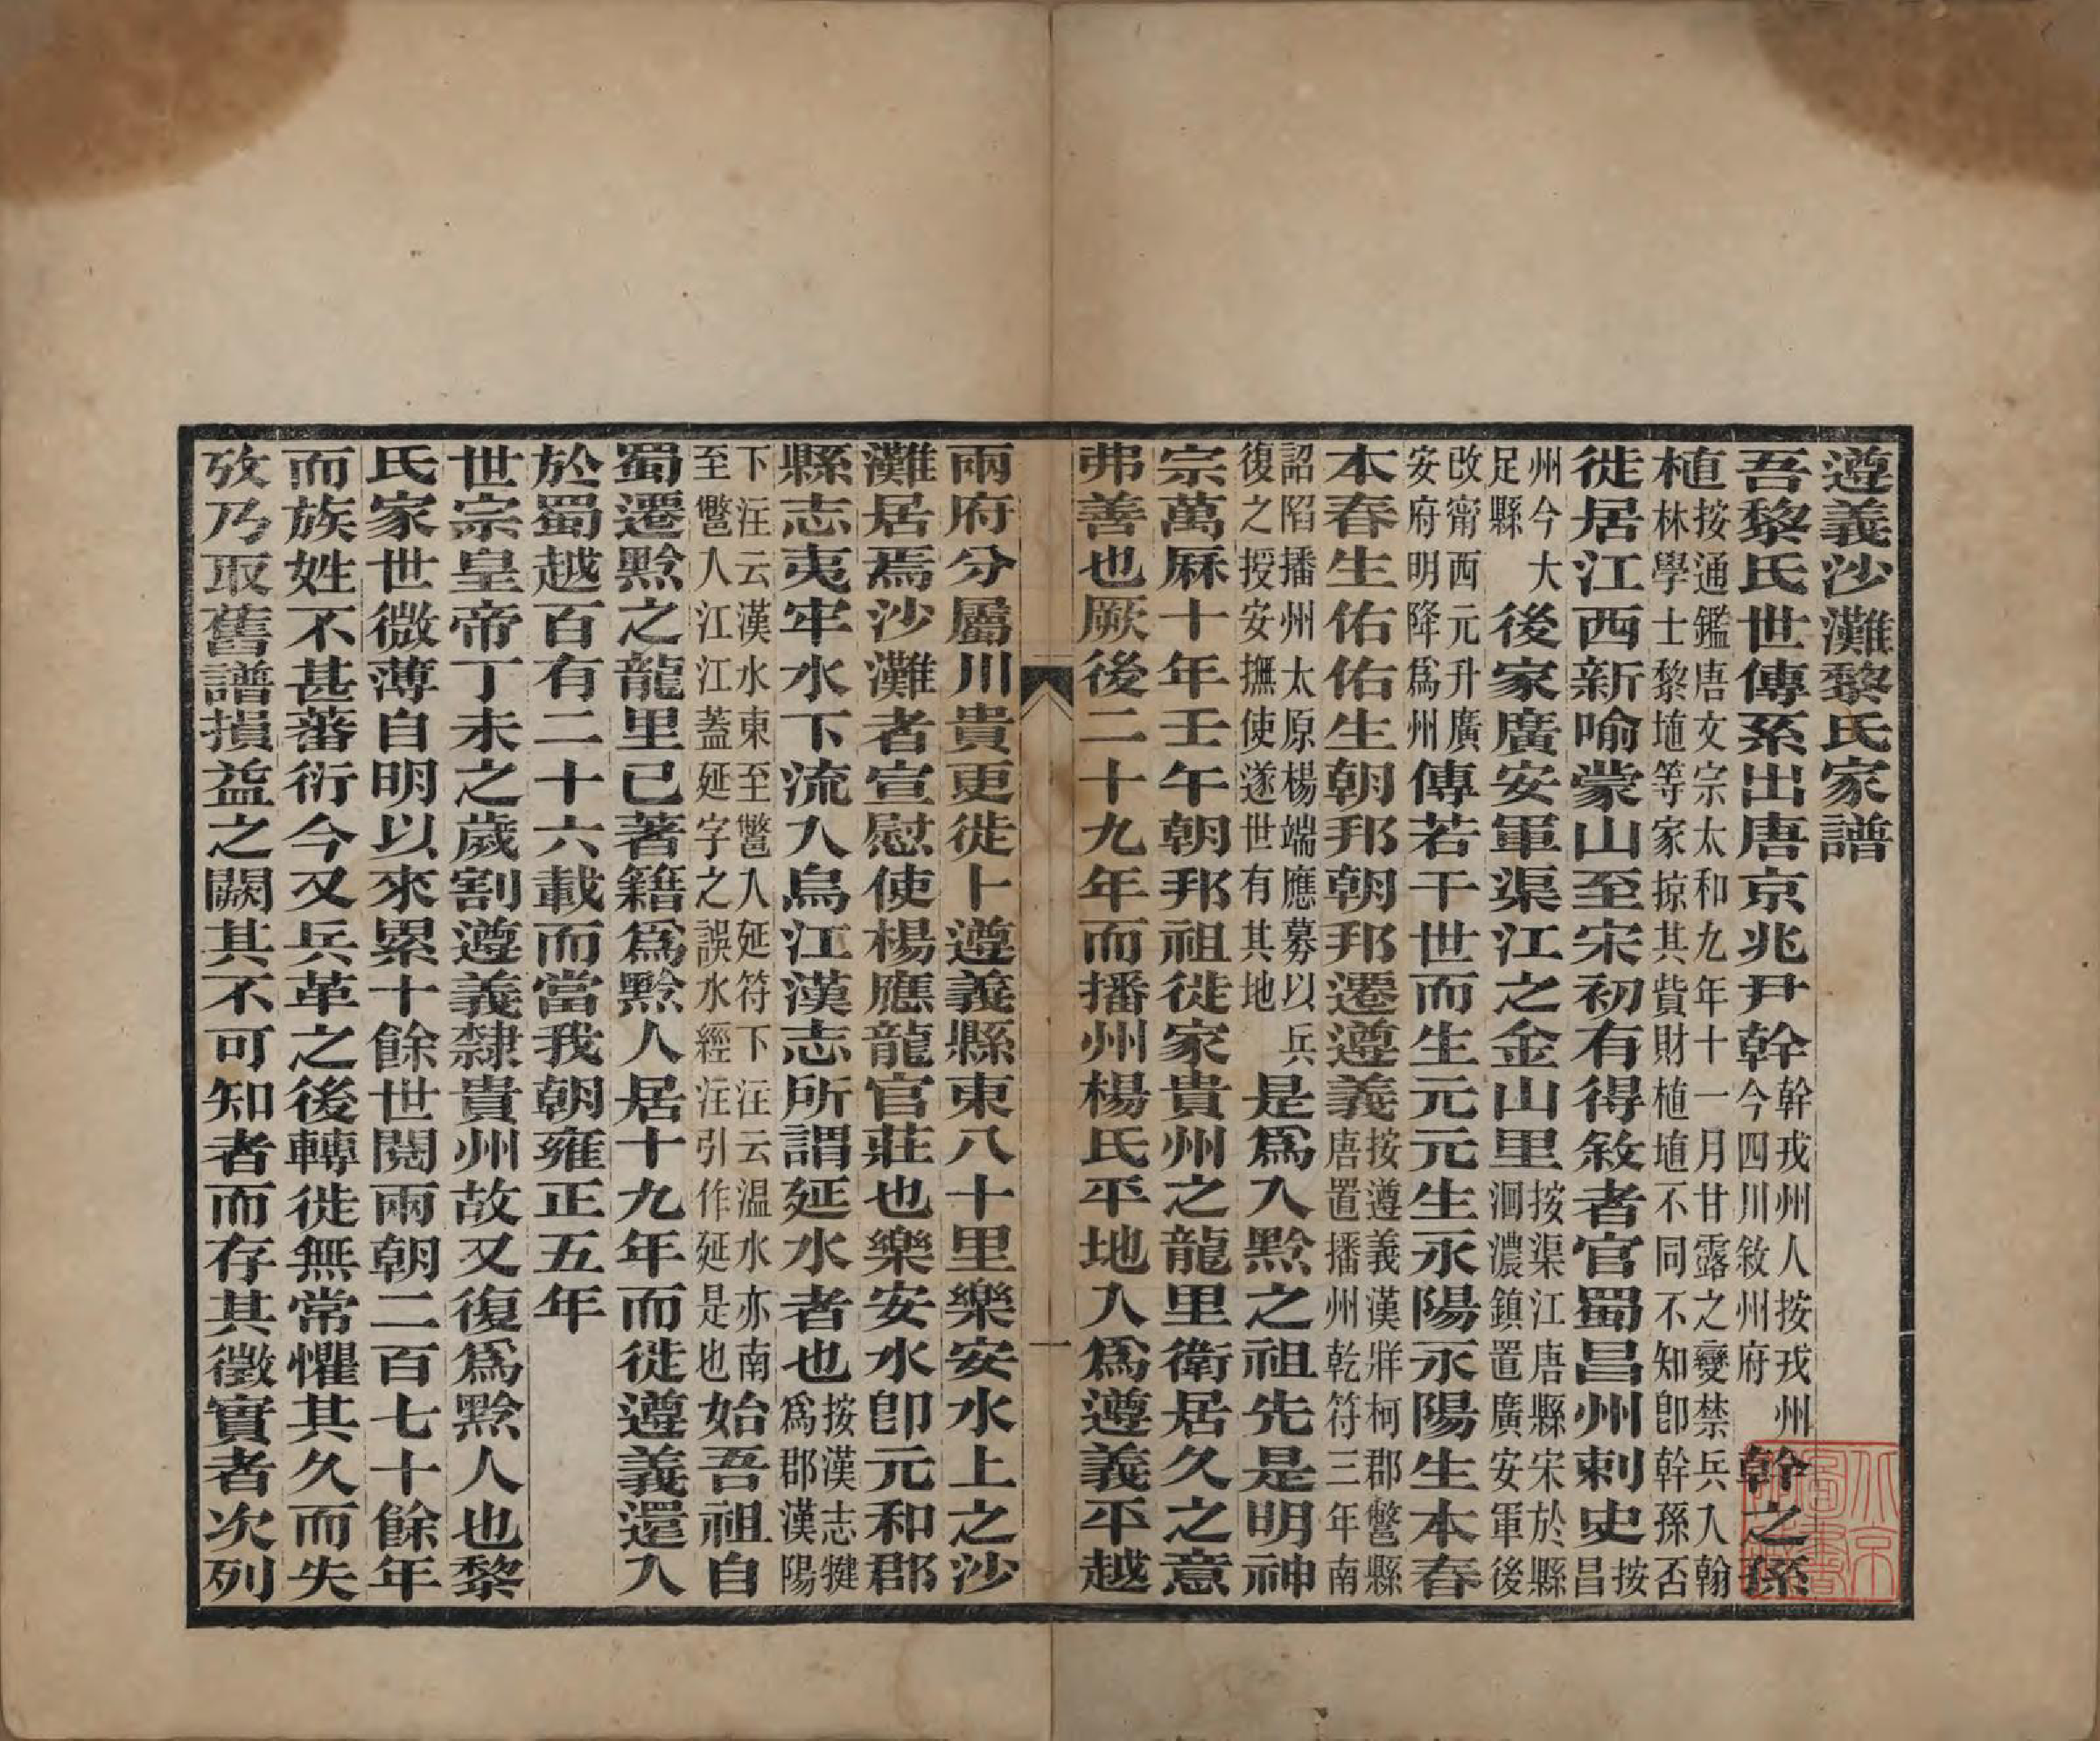 遵義沙灘黎氏家譜
吾黎氏世傳系出唐京兆尹幹幹戎州人按戎州今四川敘州府幹之孫
植按通鑑唐文宗太和九年十一月甘露之變禁兵入翰林學士黎埴等家掠其貲財植埴不同不知卽幹孫否
徙居江西新喻蒙山至宋初有得敘者官蜀昌州刺史按昌
州今大足縣後家廣安軍渠江之金山里按渠江唐縣宋於縣洄濃鎮置廣安軍後
改甯西元升廣安府明降爲州傳若干世而生元元生永陽永陽生本春
本春生佑佑生朝邦朝邦遷遵義按遵義漢牂柯郡鄨縣唐置播州乾符三年南
詔陷播州太原楊端應募以兵復之授安撫使遂世有其地是爲入黔之祖先是明神
宗萬厤十年壬午朝邦祖徙家貴州之龍里衛居久之意
弗善也厥後二十九年而播州楊氏平地入爲遵義平越
一
兩府分屬川貴更徙卜遵義縣東八十里樂安水上之沙
灘居焉沙灘者宣慰使楊應龍官莊也樂安水卽元和郡
縣志夷牢水下流入烏江漢志所謂延水者也按漢志犍爲郡漢陽
下注云漢水東至鄨入延符下注云溫水亦南至鄨入江江蓋延字之誤水經注引作延是也始吾祖自
蜀遷黔之龍里已著籍爲黔人居十九年而徙遵義還入
於蜀越百有二十六載而當我朝雍正五年
世宗皇帝丁未之歲割遵義隸貴州故又復爲黔人也黎
氏家世微薄自明以來累十餘世閱兩朝二百七十餘年
而族姓不甚蕃衍今又兵革之後轉徙無常懼其久而失
攷乃取舊譜損益之闕其不可知者而存其徵實者次列